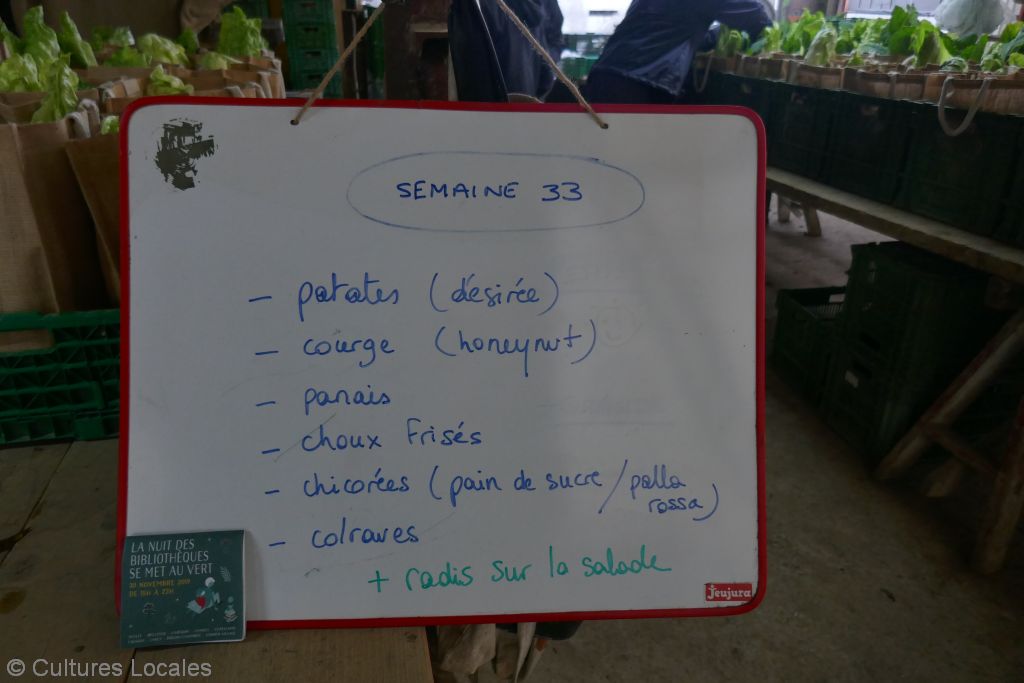 SEMAINE 33
– patates (désirée)
– courge (honeynut)
– panais
– choux Frisés
– chicorées (pain de sucre / palla rossa)
– colraves
+ radis sur la salade
Jeujura
LA NUIT DES
BIBLIOTHÈQUES
SE MET AU VERT
30 NOVEMBRE 2019
© Cultures Locales